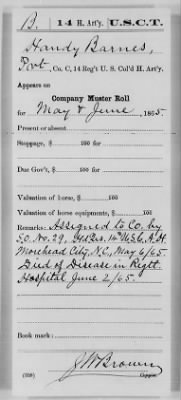 B. 14 H. Art'y. U.S.C.T.
Handy Barnes,
Pvt., Co. C, 14 Reg't U. S. Col'd H. Art'y.
Appears on
Company Muster Roll
for May & June, 1865
Present or absent
Stoppage, $ 100 for
Due Gov't, $ 100 for
Valuation of horse, $ 100
Valuation of horse equipments, $ 100
Remarks: Assigned to Co. by
S.O. No. 29, Hd Qrs. 14th U.S.C.A.H.
Morehead City, N.C., May 6/65.
Died of Disease in Regtl.
Hospital June 2/65.
Book mark:
J W Brown
(359) Copyist.